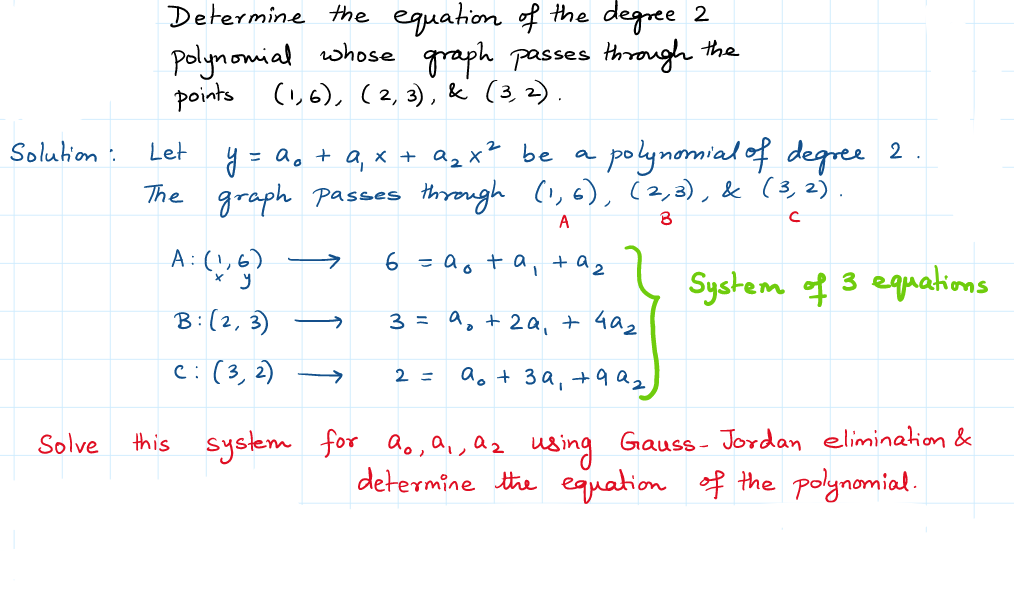 Determine the equation of the degree 2
polynomial whose graph passes through the
points (1,6), (2,3), & (3,2).
Solution: Let y = a₀ + a₁x + a₂x² be a polynomial of degree 2.
The graph passes through (1,6), (2,3), & (3,2).
A B C
A: (1,6) ⟶ 6 = a₀ + a₁ + a₂
x y
System of 3 equations
B: (2,3) ⟶ 3 = a₀ + 2a₁ + 4a₂
C: (3,2) ⟶ 2 = a₀ + 3a₁ + 9a₂
Solve this system for a₀, a₁, a₂ using Gauss-Jordan elimination &
determine the equation of the polynomial.